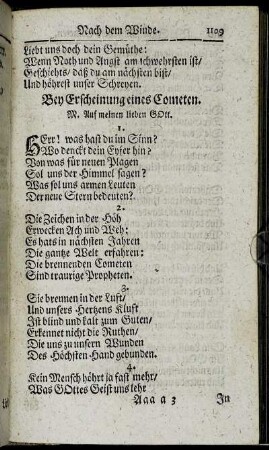 Nach dem Winde. 1109
Liebt uns doch dein Gemüthe:
Wenn Noth und Angst am schwehrsten ist/
Geschichts/ daß du am nächsten bist/
Und höhrest unser Schreyen.
Bey Erscheinung eines Cometen.
M. Auf meinen lieben GOtt.
1.
HErr! was hast du im Sinn?
Wo denckt dein Eyfer hin?
Von was für neuen Plagen
Sol uns der Himmel sagen?
Was sol uns armen Leuten
Der neue Stern bedeuten?
2.
Die Zeichen in der Höh
Erwecken Ach und Weh:
Es hats in nächsten Jahren
Die gantze Welt erfahren:
Die brennenden Cometen
Sind traurige Propheten.
3.
Sie brennen in der Luft/
Und unsers Hertzens Kluft
Ist blind und kalt zum Guten/
Erkennet nicht die Ruthen/
Die uns zu unsern Wunden
Des Höchsten-Hand gebunden.
4.
Kein Mensch höhrt ja fast mehr/
Was GOttes Geist uns lehr
Aaa a 3 In